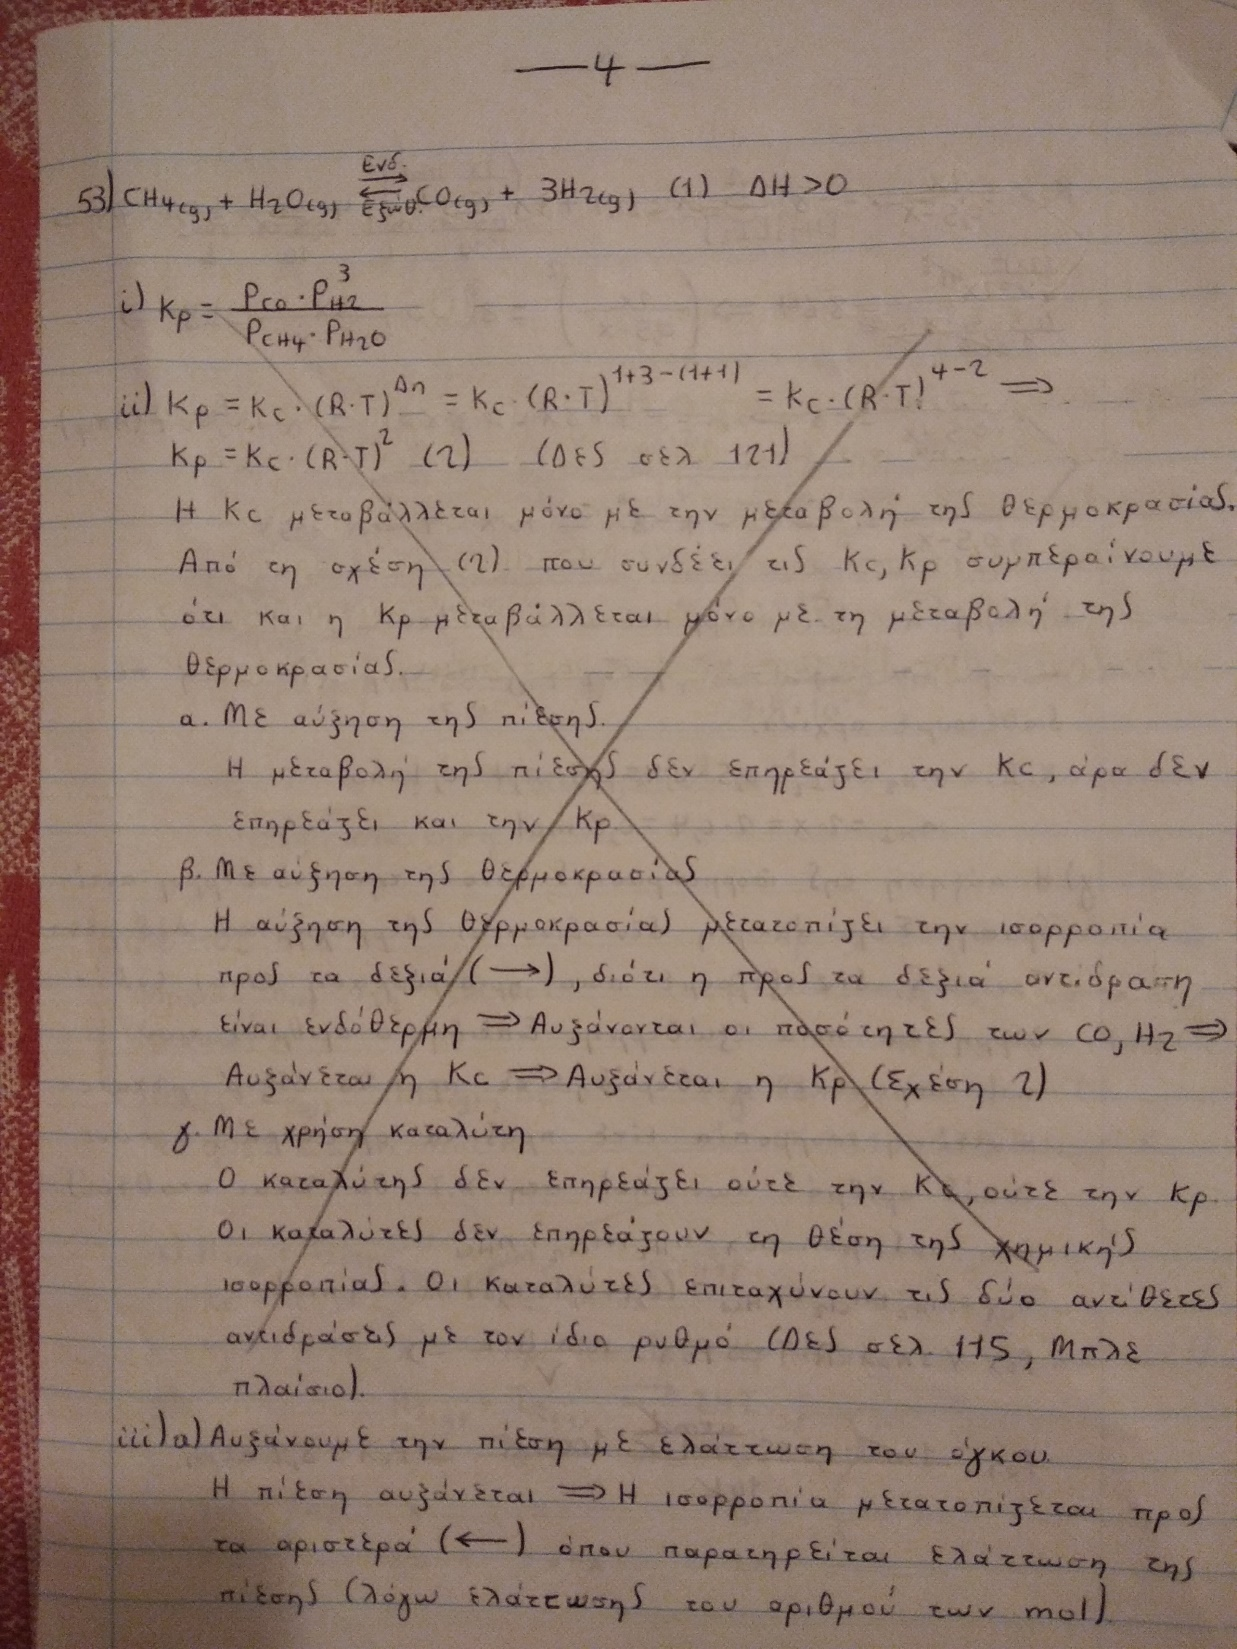 — 4 —
53) CH4(g) + H2O(g) ⇌ CO(g) + 3H2(g) (1) ΔH > 0
Ενδ.
Εξώθ.
i) Kp = PCO · PH2^3 / PCH4 · PH2O
ii) Kp = Kc · (R·T)^Δn = Kc · (R·T)^1+3-(1+1) = Kc · (R·T)^4-2 ⇒
Kp = Kc · (R·T)^2 (2) (Δες σελ 121)
Η Kc μεταβάλλεται μόνο με την μεταβολή της θερμοκρασίας.
Από τη σχέση (2) που συνδέει τις Kc, Kp συμπεραίνουμε
ότι και η Kp μεταβάλλεται μόνο με τη μεταβολή της
θερμοκρασίας.
α. Με αύξηση της πίεσης.
Η μεταβολή της πίεσης δεν επηρεάζει την Kc, άρα δεν
επηρεάζει και την Kp
β. Με αύξηση της θερμοκρασίας
Η αύξηση της θερμοκρασίας μετατοπίζει την ισορροπία
προς τα δεξιά (→), διότι η προς τα δεξιά αντίδραση
είναι ενδόθερμη ⇒ Αυξάνονται οι ποσότητες των CO, H2 ⇒
Αυξάνεται η Kc ⇒ Αυξάνεται η Kp (Σχέση 2)
γ. Με χρήση καταλύτη
Ο καταλύτης δεν επηρεάζει ούτε την Kc, ούτε την Kp.
Οι καταλύτες δεν επηρεάζουν τη θέση της χημικής
ισορροπίας. Οι καταλύτες επιταχύνουν τις δύο αντίθετες
αντιδράσεις με τον ίδιο ρυθμό (Δες σελ. 115, Μπλε
πλαίσιο).
iii) α) Αυξάνουμε την πίεση με ελάττωση του όγκου.
Η πίεση αυξάνεται ⇒ Η ισορροπία μετατοπίζεται προς
τα αριστερά (←) όπου παρατηρείται ελάττωση της
πίεσης (λόγω ελάττωσης του αριθμού των mol).